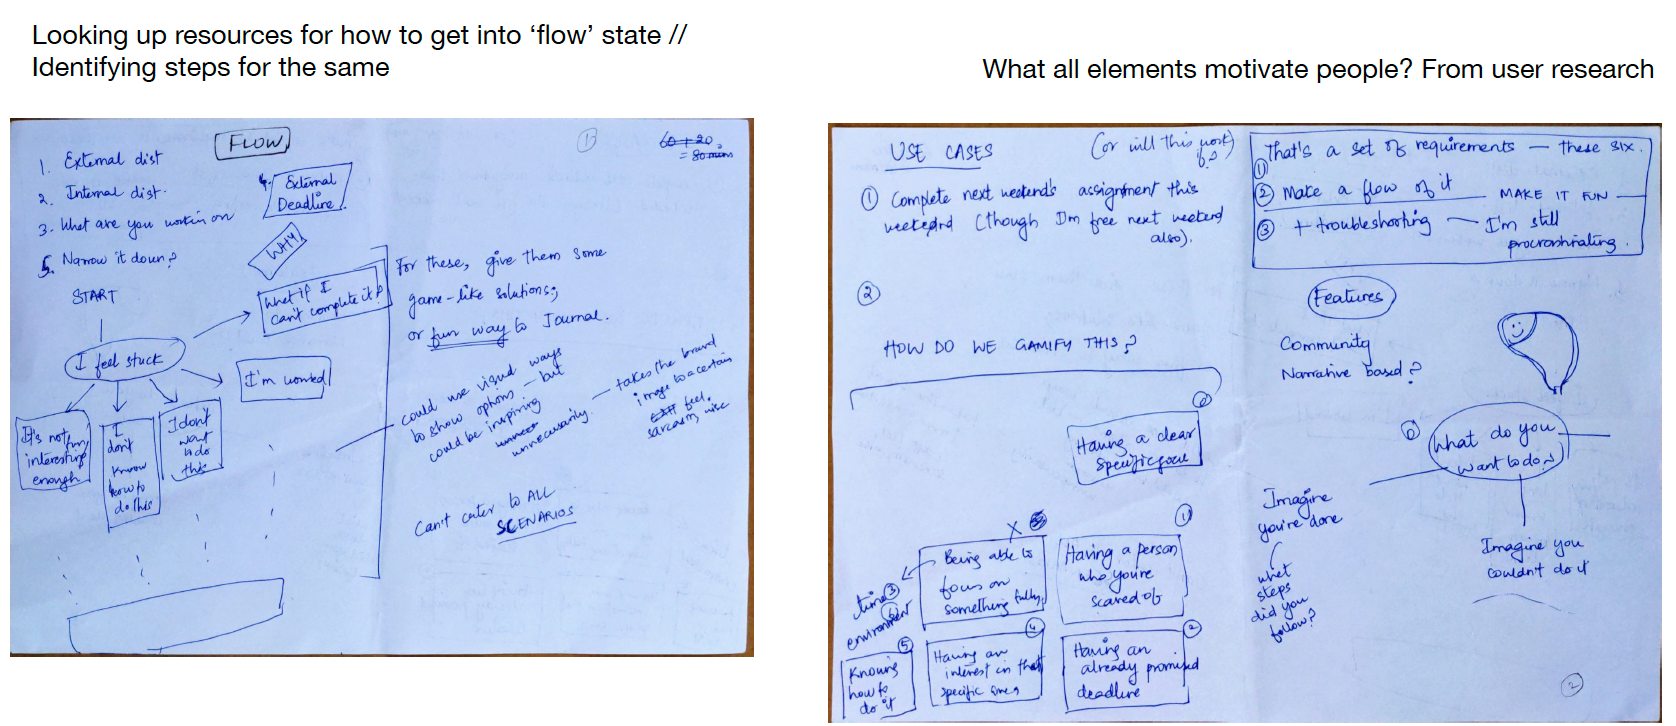 Looking up resources for how to get into ‘flow’ state //
Identifying steps for the same
What all elements motivate people? From user research
FLOW
1
60 + 20
= 80 mins
1. External dist
2. Internal dist.
3. What are you workin on
4. External
Deadline
5. Narrow it down?
WHY
START
I feel stuck
What if I
can't complete it?
I'm worried
It's not fun,
interesting
enough
I
don't
know
how to
do this
I don't
want
to do
this
For these, give them some
game-like solutions;
or fun way to Journal.
could use visual ways
to show options - but
could be inspiring
unnecessarily.
takes the brand
image to a certain
feel.
sarcasm, wise
Can't cater to ALL
SCENARIOS
USE CASES
(or will this work)
for?
1 Complete next weekend's assignment this
weekend (though I'm free next weekend
also).
2
HOW DO WE GAMIFY THIS?
0
Having a clear
specific goal
X
Being able to
focus on
something fully,
time 3
6
environment
1
Having a person
who you're
scared of
5
Knowing
how to
do it
4
Having an
interest in that
specific area
2
Having an
already promised
deadline
That's a set of requirements — these six.
1
2 Make a flow of it — MAKE IT FUN
3 + troubleshooting — I'm still
procrastinating.
Features
Community
Narrative based?
0
What do you
want to do?
Imagine
you're done
what
steps
did you
follow?
Imagine you
couldn't do it
2